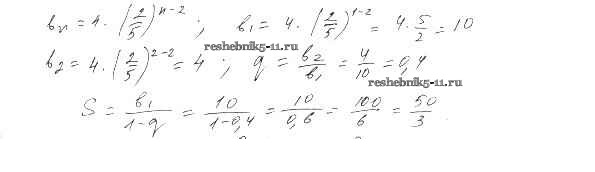 вn = 4 · (2/5)^(n-2) ; в1 = 4 · (2/5)^(1-2) = 4 · 5/2 = 10
reshebnik5-11.ru
в2 = 4 · (2/5)^(2-2) = 4 ; q = в2/в1 = 4/10 = 0,4
reshebnik5-11.ru
S = в1/(1-q) = 10/(1-0,4) = 10/0,6 = 100/6 = 50/3